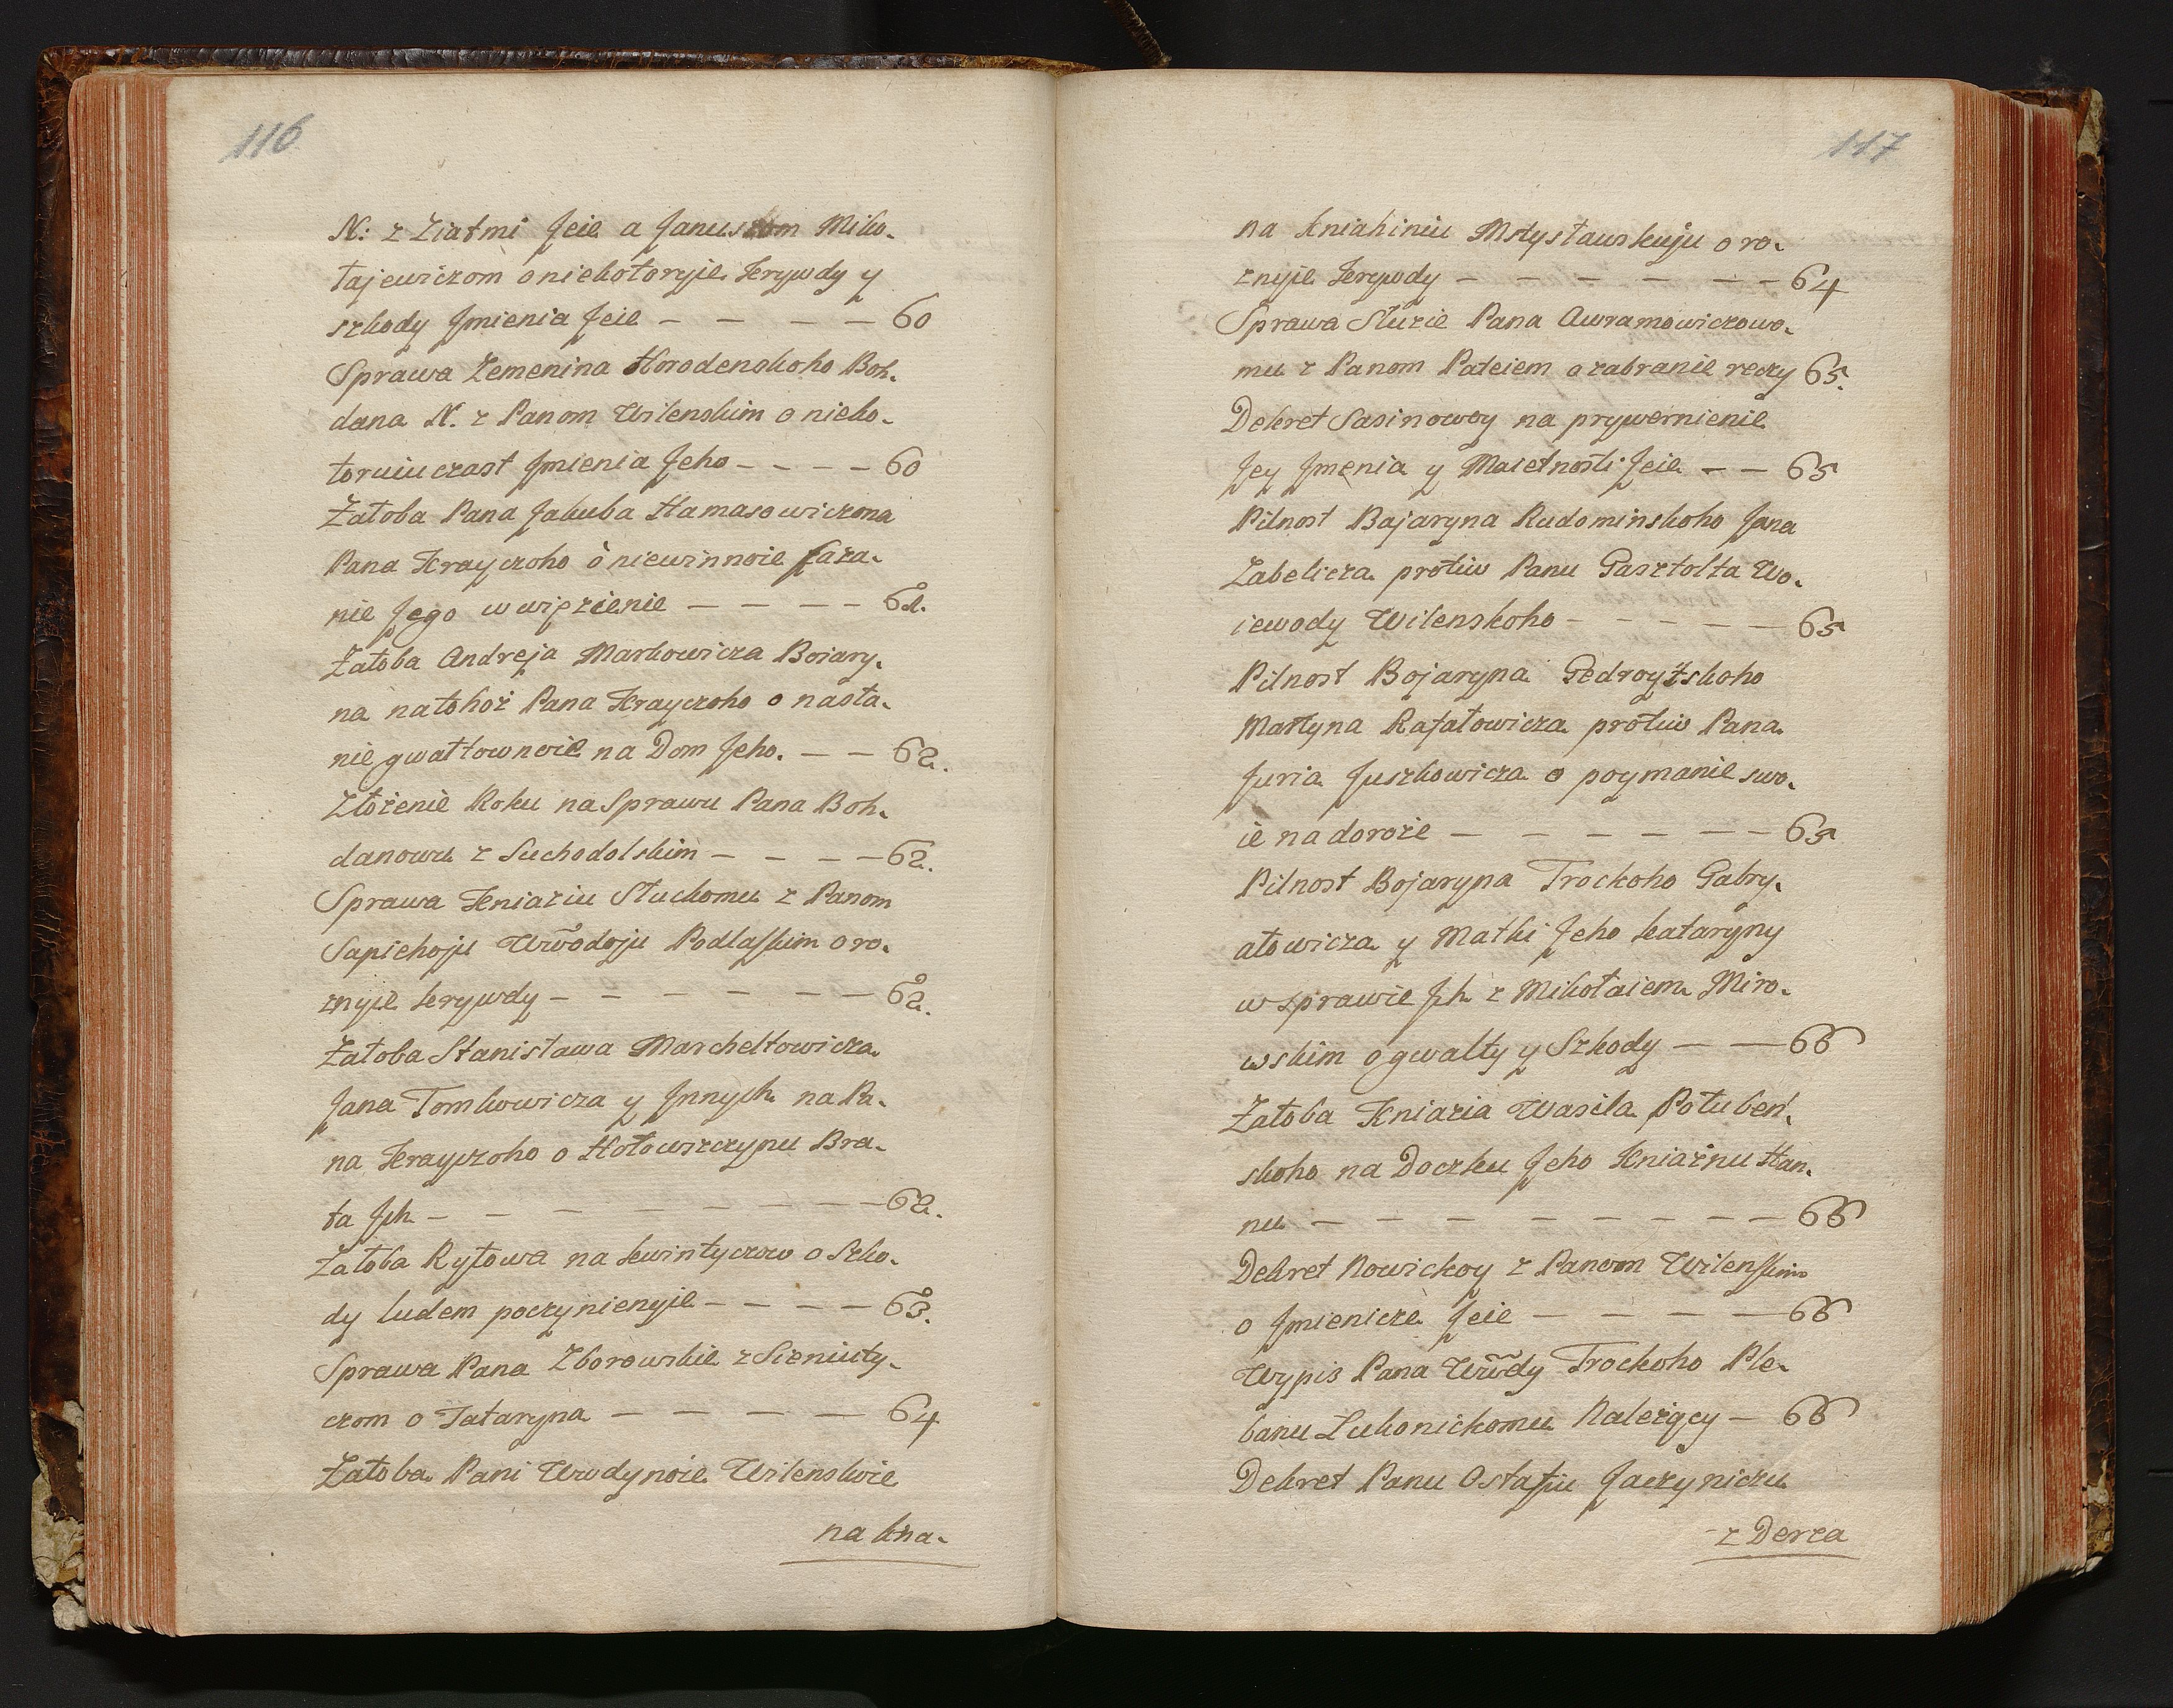 116
N: z Ziatmi Jeie a Januszom Miko-
łajewiczom o niekotoryie Krywdy y
szkody Jmienia Jeie — — — — 60
Sprawa Zemenina Horodenskoho Boh-
dana N. z Panom Wilenskim o nieko-
toruiu czast Jmienia Jeho — — — — 60
Żałoba Pana Jakuba Hamasowiczona
Pana Krayczoho o niewinnoie saża-
nie Jego w więzienie — — — — 61.
Żałoba Andreja Markowicza Boiary-
na natohoż Pana Krayczoho o nasła-
nie gwałtownoie na Dom Jeho. — — 62.
Złożenie Roku na Sprawu Pana Boh-
danowu z Suchodolskim — — — — 62.
Sprawa Kniaziu Słuckomu z Panom
Sapiehoju Wwodoju Podlaskim o ro-
znyie krywdy — — — — — — — 62.
Żałoba Stanisława Marchełtowicza
Jana Tomkowicza y Jnnych na Pa-
na Krayczoho o Hołowszczynu Bra-
ta Jch — — — — — — — — — 62.
Żałoba Rytowa na Kwintyczow o Szko-
dy ludem poczynienyie — — — — 63.
Sprawa Pana Zborowskie z Sieniuty-
czom o Tataryna — — — — — 64
Żałoba Pani Wwodynoie Wilenskoie
na kna-
117
na kniahiniu Mstysławskuju o ro-
znyie Krywdy — — — — — — — 64
Sprawa Służie Pana Awramowiczowo-
mu z Panom Pateiem o zabranie reczy 65.
Dekret Sasinowoy na prywernienie
Jey Jmenia y Maietnosti Jeie — — 65
Pilnost Bajaryna Rudominskoho Jana
Zabelicza protiw Panu Gasztolta Wo-
iewody Wilenskoho — — — — — — 65
Pilnost Bojaryna Gedroytskoho
Martyna Rafałowicza protiw Pana
Juria Juszkowicza o poymanie swo-
ie na doroże — — — — — — — 65
Pilnost Bojaryna Trockoho Gabry-
ałowicza y Matki Jeho Kataryny
w sprawie Jch z Mikołaiem Miro-
wskim o gwałty y Szkody — — — 66
Żałoba Kniazia Wasila Połuben-
skoho na Doczku Jeho Kniażnu Han-
nu — — — — — — — — — 66
Dekret Nowickoy z Panom Wilenskim
o Jmienicze Jeie — — — — — 66
Wypis Pana Wwdy Trockoho Ple-
banu Łukonickomu Należący — 66
Dekret Panu Ostafiu Jaczyniczu
z Derza